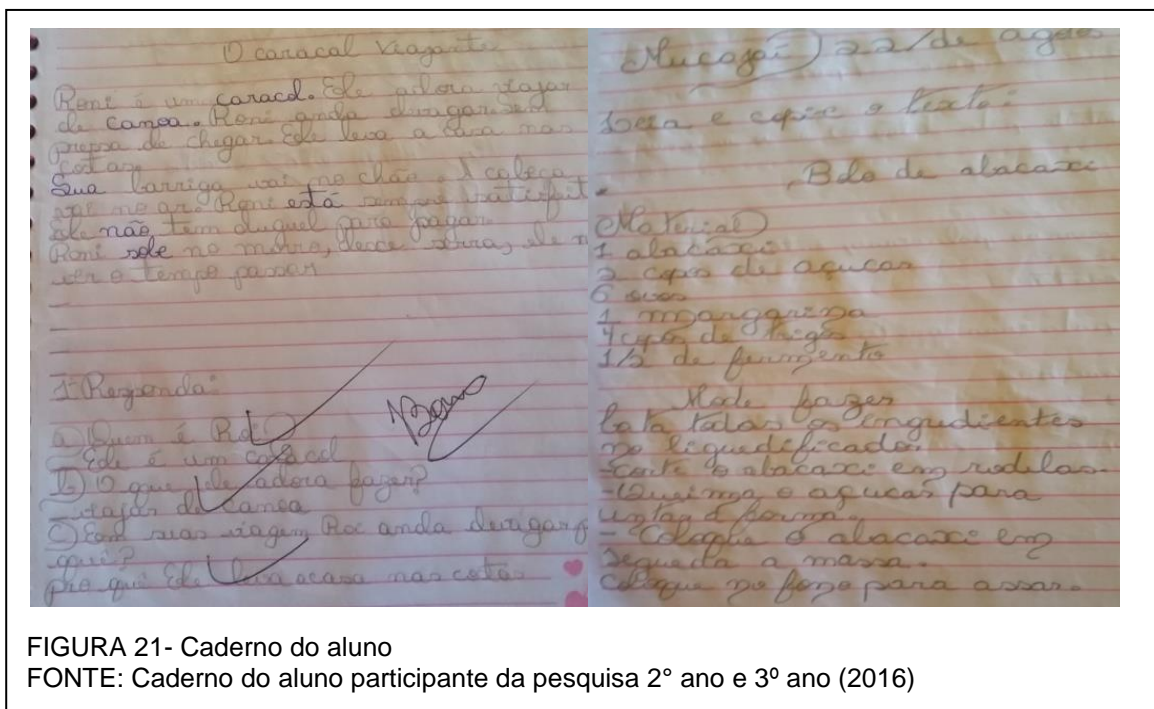 O caracal viagante
Roni é um caracol. Ele adora viajar
de canoa. Roni anda devagar sem
prepsa de chegar. Ele leva a casa nas
costas
Sua barriga vai no chão. A cabeça
vai no ar. Roni está sempre satisfeit
Ele não tem aluguel para pagar.
Roni sobe no morro, desce serra, ele n
ver o tempo passar
1- Responda:
a) Quem é Roi
Ele é um caracol
b) O que ele adora fazer?
viajar de canoa
C) Em suas viagem Roi anda devagar p
quê?
pro que Ele leva acasa nas costas
Bom
Mucajaí 22/de agos
Leia e copie o texto:
Bolo de abacaxi
Material
1 abacaxi
2 copos de açucar
6 ovos
1 margarina
4 copos de trigo
1/2 de fermento
Mode fazer
Bata todos os ingredientes
no liquidificador.
-Corte o abacaxi em rodelas.
-Queima o açucar para
untar a forma.
- Coloque o abacaxi em
seguada a massa.
Coloque no forno para assar.
FIGURA 21- Caderno do aluno
FONTE: Caderno do aluno participante da pesquisa 2° ano e 3º ano (2016)